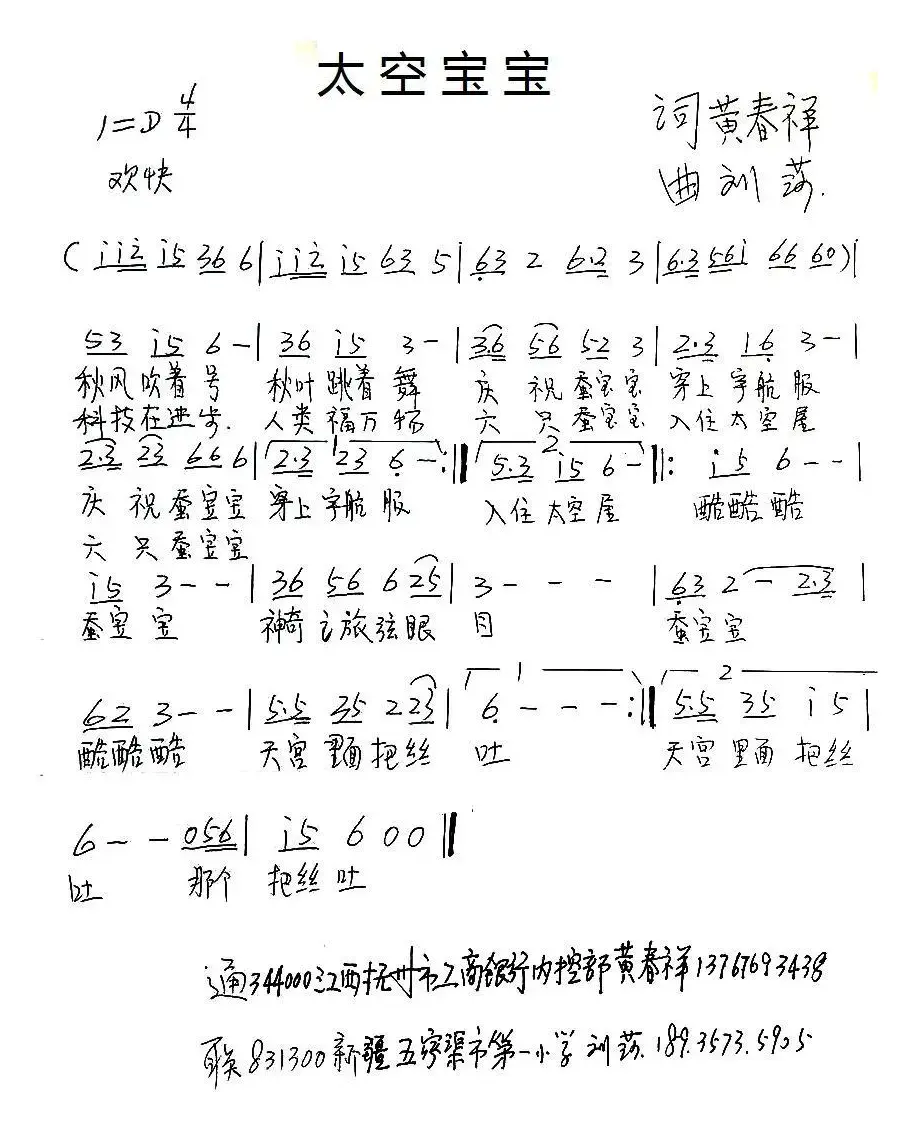 太空宝宝
1=D 4/4
词黄春祥
欢快
曲刘莎.
(i i 2 i5 36 6|i i 2 i5 63 5|63 2 6·2 3|6·3 56i 66 60)|
53 i5 6-|36 i5 3-|36 56 52 3|2·3 16 3-|
秋风吹着号 秋叶跳着舞 庆祝蚕宝宝 穿上宇航服
科技在进步. 人类福万杨 六只蚕宝宝 入住太空屋
1 2
2·3 23 66 6|2·3 23 6-:‖5·3 i5 6-‖: i5 6--|
庆祝蚕宝宝 穿上宇航服 入住太空屋 酷酷酷
六只蚕宝宝
i5 3--|36 56 6 25|3---|63 2-2·3|
蚕宝宝 神奇之旅弦眼目 蚕宝宝
1 2
62 3--|5·5 35 2 23|6---:‖5·5 35 i 5|
酷酷酷 天宫里面把丝吐 天宫里面把丝
6--056|i5 6 0 0‖
吐 那个 把丝吐
通344000江西抚州市工商银行内控部黄春祥13767693438
联831300新疆五家渠市第一小学刘莎.189.3573.5905